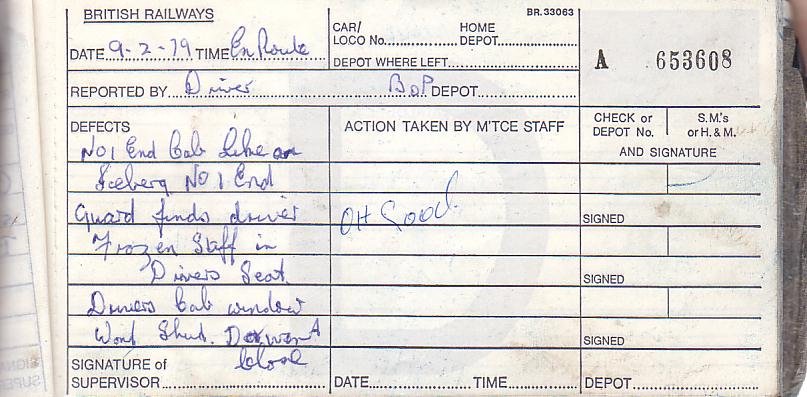 BRITISH RAILWAYS
BR.33063
DATE 9-2-79 TIME En Route
CAR/ LOCO No. HOME DEPOT
DEPOT WHERE LEFT
A 653608
REPORTED BY Driver BOP DEPOT
DEFECTS
ACTION TAKEN BY M'TCE STAFF
CHECK or DEPOT No.
S.M.'s or H. & M.
AND SIGNATURE
No 1 End Cab Like an
Iceberg No 1 End
Guard finds driver
Frozen Staff in
Drivers Seat
Drivers Cab window
Wont Shud.
Close
OH Good
SIGNED
SIGNED
SIGNED
SIGNATURE of SUPERVISOR
DATE TIME
DEPOT